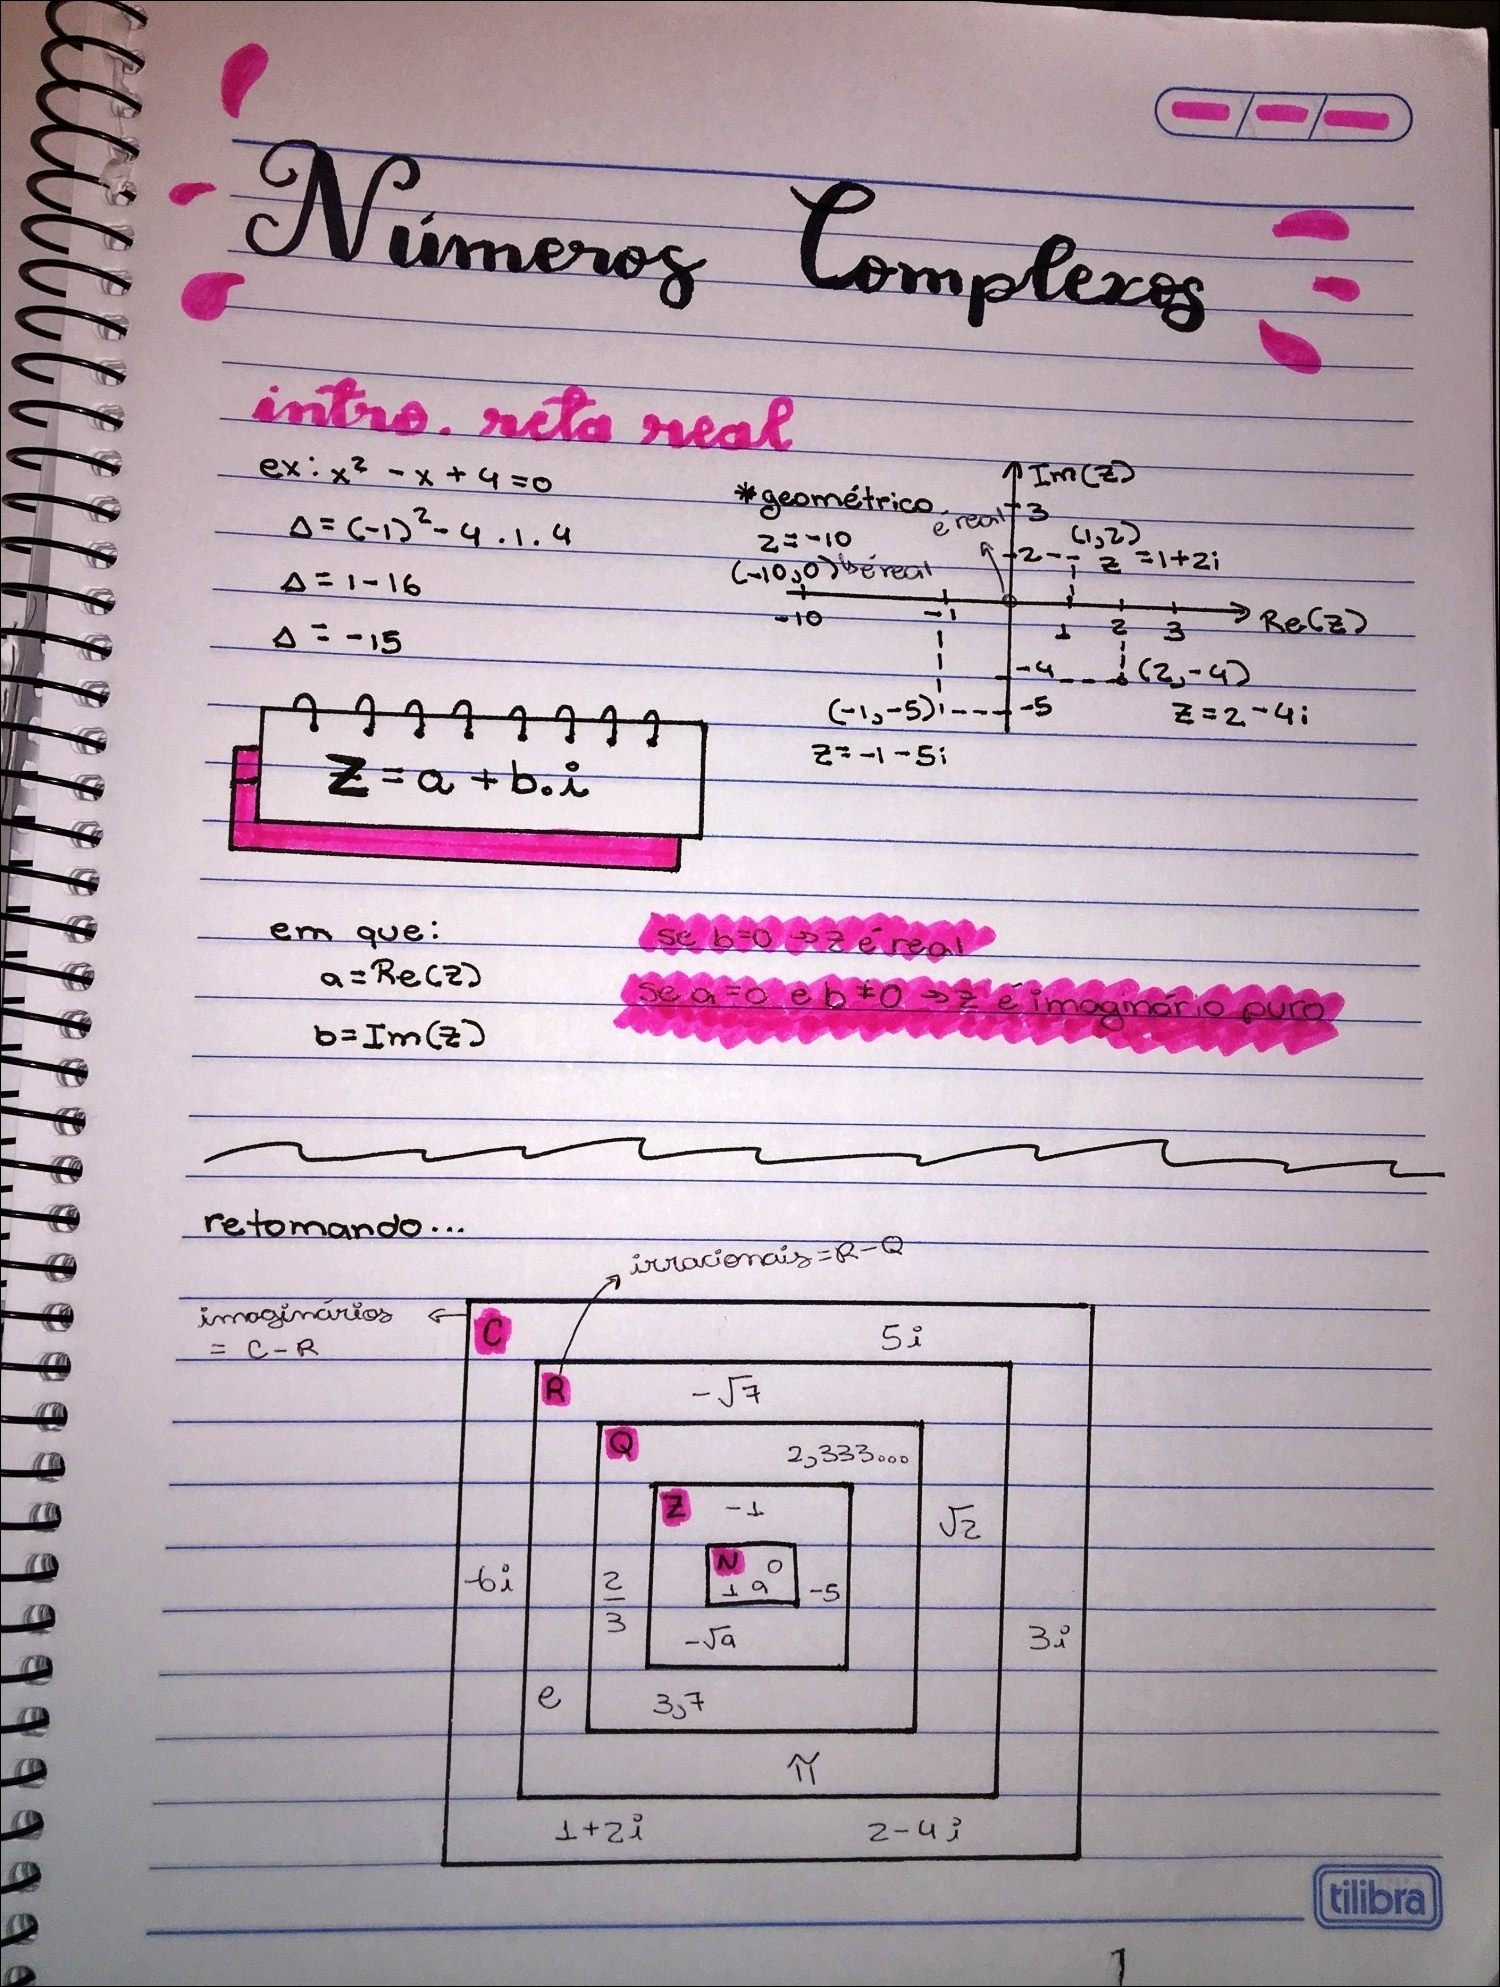 Números Complexos
intro. reta real
ex: x² - x + 4 = 0
Δ = (-1)² - 4 . 1 . 4
Δ = 1 - 16
Δ = -15
*geométrico
z = -10
(-10,0) b é real
é real
Im(z)
3
(1,2)
2
z = 1+2i
-10
-1
1
2
3
Re(z)
-4
(2,-4)
(-1,-5)
-5
z = 2-4i
z = -1-5i
z = a + b.i
em que:
a = Re(z)
b = Im(z)
se b=0 → z é real
se a=0 e b≠0 → z é imaginário puro
retomando...
irracionais = R-Q
imaginários
= C-R
C
5i
R
-√7
Q
2,333...
Z
-1
√2
N
0
1 9
-5
-6i
2/3
-√9
3i
e
3,7
π
1+2i
2-4i
tilibra
1